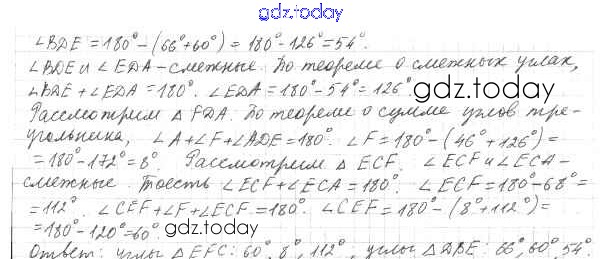 gdz.today
∠BDE = 180° - (66° + 60°) = 180° - 126° = 54°.
∠BDE и ∠EDA - смежные. По теореме о смежных углах,
∠BDE + ∠EDA = 180°. ∠EDA = 180° - 54° = 126°
gdz.today
Рассмотрим △ FDA. По теореме о сумме углов тре-
угольника, ∠A + ∠F + ∠ADE = 180°. ∠F = 180° - (46° + 126°) =
= 180° - 172° = 8°. Рассмотрим △ ECF. ∠ECF и ∠ECA -
смежные. Тоесть ∠ECF + ∠ECA = 180°. ∠ECF = 180° - 68° =
= 112°. ∠CEF + ∠F + ∠ECF = 180°. ∠CEF = 180° - (8° + 112°) =
= 180° - 120° = 60°.
gdz.today
Ответ: углы △ EFC: 60°, 8°, 112°, углы △ DBE: 66°, 60°, 54°.